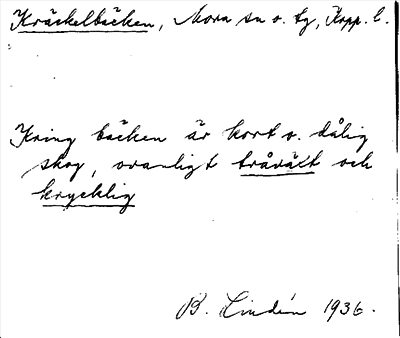 Kräckelbäcken, Mora sn o. tg, Kopp. l.
Kring bäcken är kort o. dålig
skog, ovanligt tråvält och
krycklig
B. Lindén 1936.